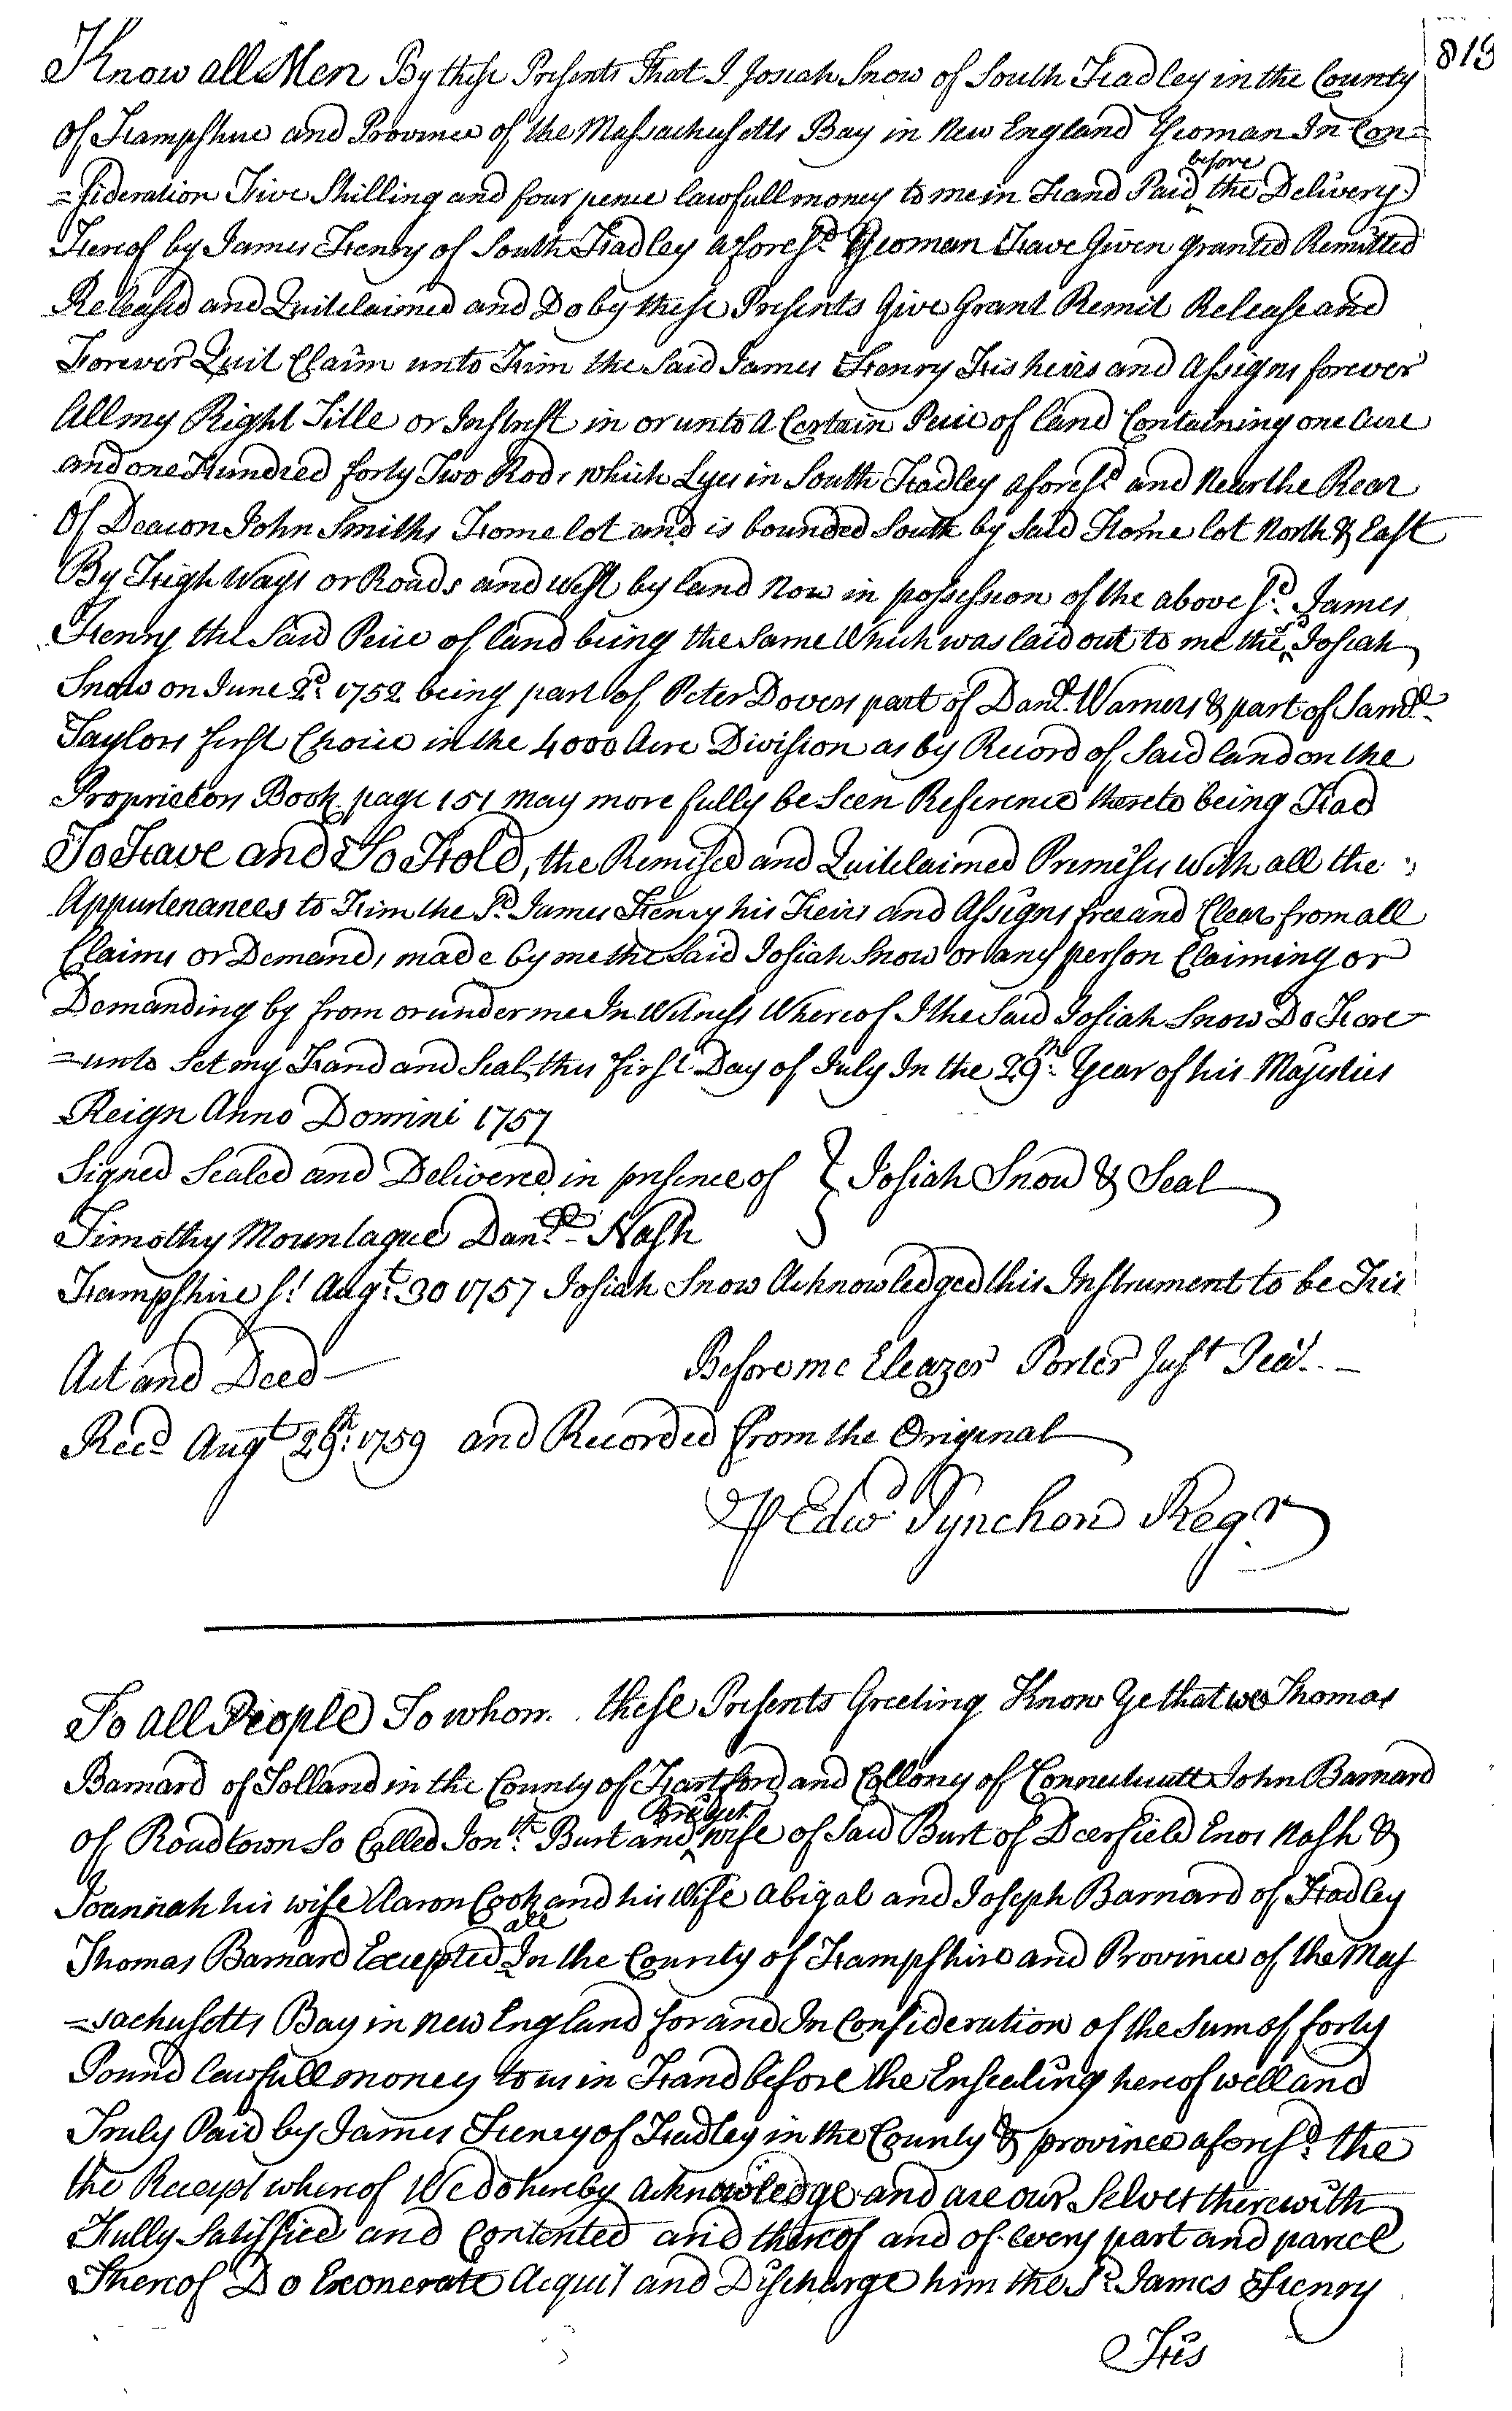 813
Know all Men By these Presents That I Josiah Snow of South Hadley in the County
Of Hampshire and Province of the Massachusetts Bay in New England Yeoman In Con=
=sideration Five Shilling and four pence lawfull money to me in Hand Paid before the Delivery
Hereof by James Henry of South Hadley aforesd. Yeoman Have Given granted Remitted
Released and Quitclaimed and Do by these Presents Give Grant Remit Release and
Forever Quit Claim unto Him the Said James Henry His heirs and Assigns forever
All my Right Title or Intrest in or unto A Certain Peice of land Containing one Acre
and one Hundred forty Two Rods which Lyes in South Hadley aforesd. and Near the Rear
Of Deacon John Smiths Home lot and is bounded South by Said Home lot North & East
By High Ways or Roads and West by land Now in possession of the above sd. James
Henry the Said Peice of land being the Same Which was laid out to me the sd. Josiah
Snow on June 2d. 1752 being part of Peter Dovers part of Danll. Warners & part of Samll.
Taylors first Choice in the 4000 Acre Division as by Record of Said land on the
Proprietors Book page 151 May more fully be Seen Reference thereto being Had
To Have and To Hold, the Remised and Quitclaimed Premises with all the
Appurtenances to Him the Sd. James Henry his Heirs and Assigns free and Clear from all
Claims or Demands made by me the Said Josiah Snow or any person Claiming or
Demanding by from or under me In Witness Whereof I the Said Josiah Snow Do Here
=unto Set my Hand and Seal this first Day of July In the 29th. Year of his Majesties
Reign Anno Domini 1757
Signed Sealed and Delivered in presence of } Josiah Snow & Seal
Timothy Mountague Danll. Nash
Hampshire Ss. Augt. 30 1757 Josiah Snow Acknowledged this Instrument to be His
Act and Deed Before me Eleazer Porter Just Peac.
Recd Augt 29th: 1759 and Recorded From the Original
P Edwd Pynchon Regr
To All People To whom these Presents Greeting Know Ye that we Thomas
Barnard of Tolland in the County of Hartford and Collony of Connecticutt John Barnard
of Roadtown So Called Jonth. Burt and Bridget wife of Said Burt of Deerfield Enos Nash &
Joannah his wife Aaron Cook and his Wife Abigal and Joseph Barnard of Hadley
Thomas Barnard Excepted all In the County of Hampshire and Province of the Mas
=sachusetts Bay in New England for and In Consideration of the Sum of forty
Pound lawfull money to us in Hand before the Ensealing hereof well and
Truly Paid by James Henry of Hadley in the County & province aforesd. the
the Receipt whereof We do hereby acknowledge and are our Selves therewith
Fully Satisfied and Contented and thereof and of every part and parcel
Thereof Do Exonerate Acquit and Discharge him the Sd. James Henry
His